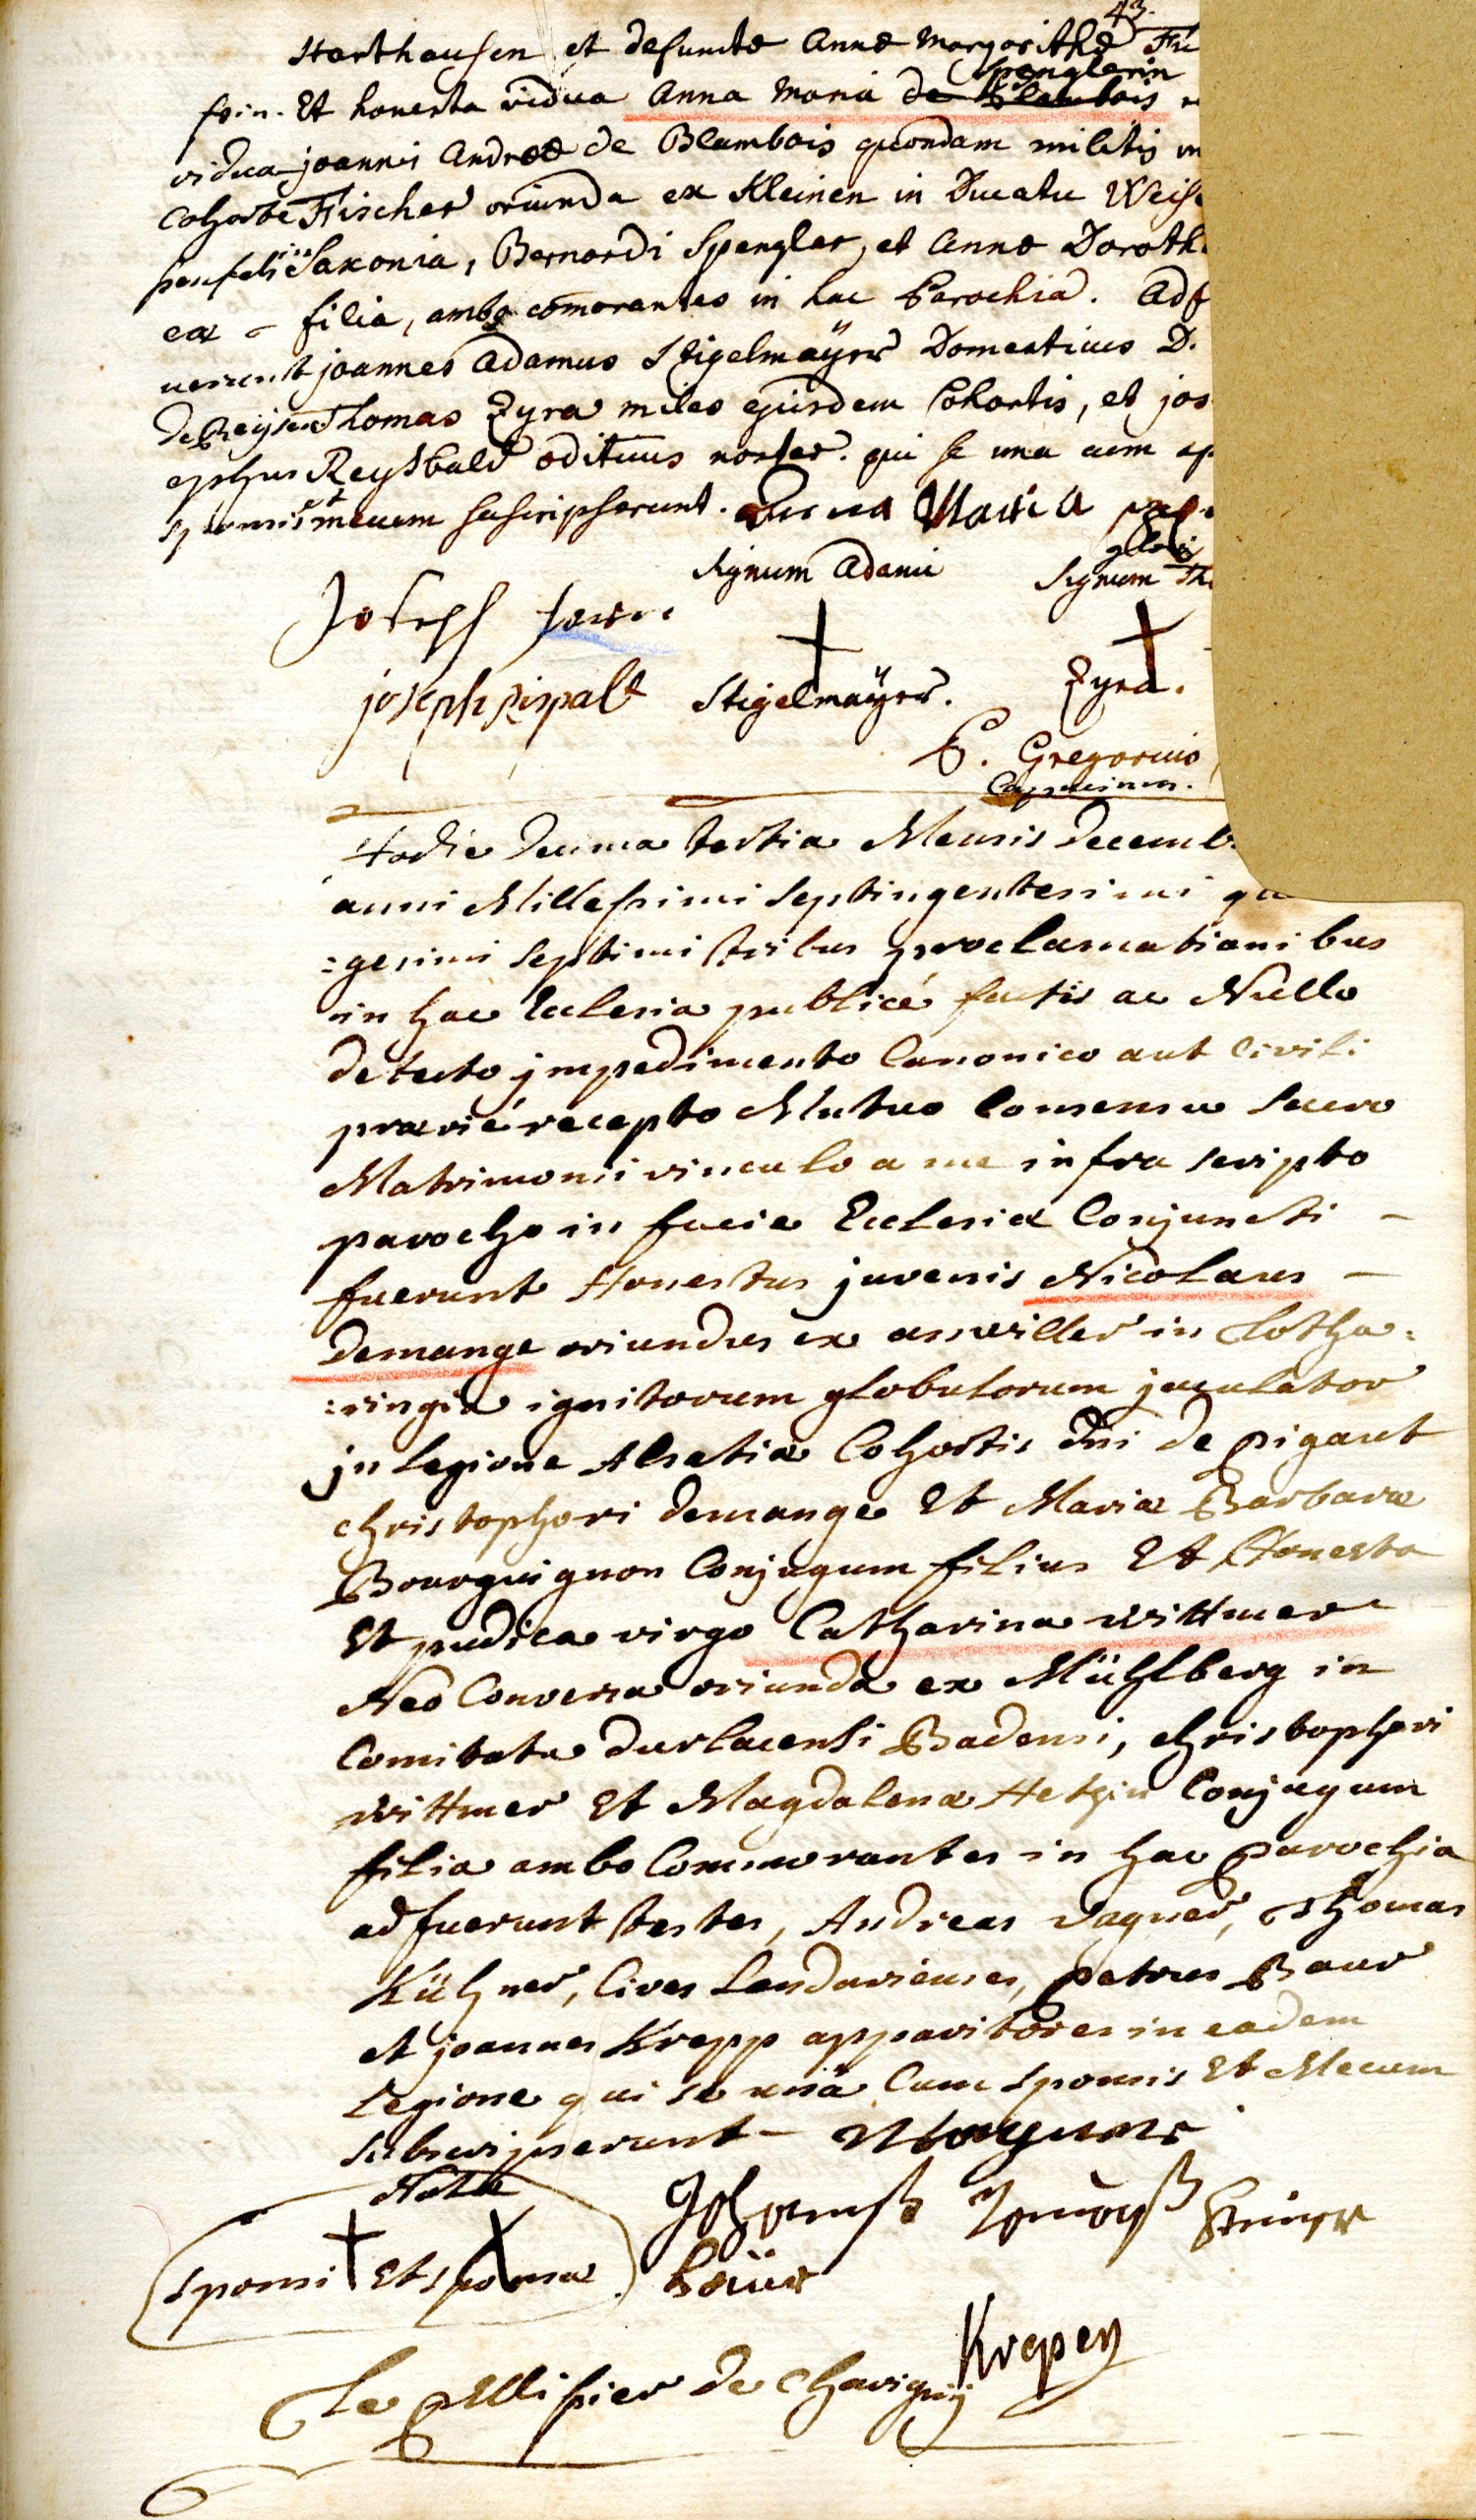 43.
Harthausen et defunctæ Annæ Margarithæ
Spenglerin
ssin. Et honesta vidua Anna Maria de Blambois
vidua joannis Andreæ de Blambois quondam militis in
Cohorte Fischer oriunda ex Kleinen in Ducatu Weiss
senfels in Saxonia, Bernardi Spengler, et Annæ Doroth
eæ - filia, ambo comorantes in hac Parochia. Adf
uerunt joannes Adamus Stigelmaÿer Domesticus D.
de Thomas Zyra miles ejusdem Cohortis, et jos
ephus Reyßbald ædituus noster. qui se una cum sp
sponsis et mecum subscripserunt. Anna Maria
Signum Adami Signum Th
Joseph
joseph rispalt Stigelmaÿer. Zyra.
P. Gregorius
Capucinus.
Hodie decima tertia Mensis decemb
anni Millessimi septingentesimi qua
=gesimi septimi tribus proclamationibus
in hac Ecclesia publicé factis ac Nullo
detecto jmpedimento Canonico aut Civili
prævié recepto Mutuo Consensu sacro
Matrimonii vinculo a me infra scripto
parocho in facie Ecclesiæ Conjuncti -
fuerunt Honestus juvenis Nicolaus -
demange oriundus ex anwiller in Lotha=
=ringia ignitorum globulorum jaculator
jn legione Alsatiæ Cohortis dni de pigaut
christophori demange Et Mariæ Barbaræ
Bourguignon Conjugum filius Et Honesta
Et pudica virgo Catharina wittmer
Neo Conversa oriunda ex Mühlberg in
Comitatu durlacensi Badensi, christophori
wittmer Et Magdalenæ Hetzin Conjugum
filia ambo Commorantes in hac parochia
adfuerunt testes, Andreas vagner, Thomas
Kühner, Cives Landavienses, petrus Baur
et joannes Krepp apparitores in eadem
Legione qui se unà Cum sponsis Et Mecum
subscripserunt -
Nota
sponsi Et sponsæ
Krepen
Le Pellissier de chavigny